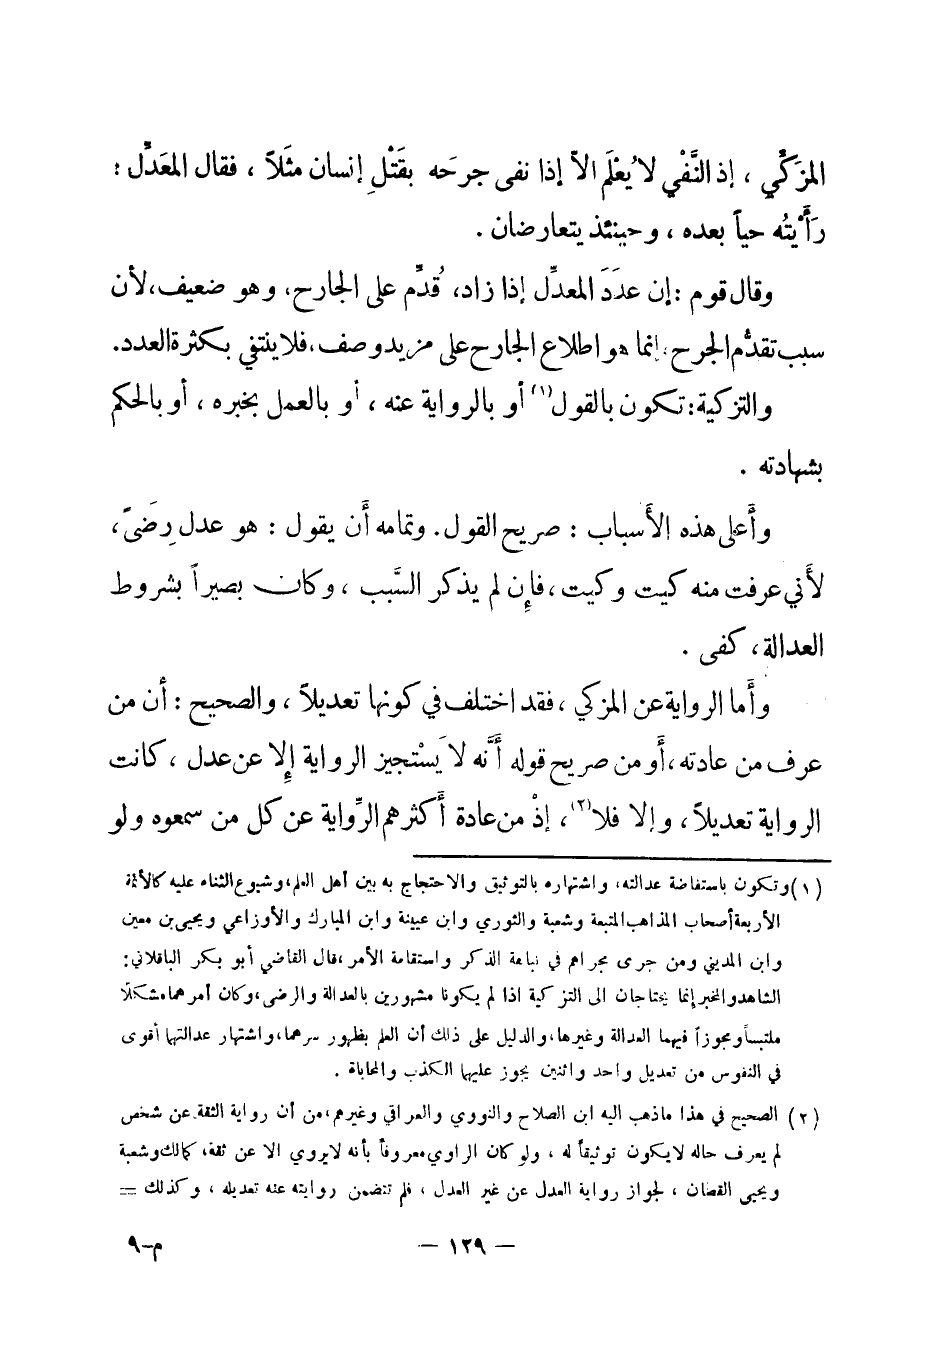 المزَكِّي ، إذ النَّفْي لا يُعْلَم الاّ إذا نفى جرحَه بقَتْلِ إنسان مثَلاً ، فقال المعَدِّل :
رَأَيتُه حياً بعده ، وحينئذ يتعارضان .
وقال قوم : إن عدَدَ المعدِّل إذا زاد، قُدِّم على الجارح، وهو ضعيف، لأن
سبب تقدُّم الجرح، إنما هو اطلاع الجارح على مزيد وصف، فلا ينتفي بكثرة العدد.
والتزكية: تكون بالقول(١) أو بالرواية عنه ، أو بالعمل بخبره ، أو بالحكم
بشهادته .
وأَعلى هذه الأَسباب : صريح القول. وتمامه أَن يقول : هو عدل رِضَىً،
لأَني عرفت منه كيت وكيت ، فإِن لم يذكر السَّبب ، وكان بصيراً بشروط
العدالة ، كفى .
وأَما الرواية عن المزكي ، فقد اختلف في كونها تعديلاً ، والصحيح : أن من
عرف من عادته ، أَو من صريح قوله أَنَّه لا يَسْتجيز الرواية إِلا عن عدل ، كانت
الرواية تعديلاً ، وإلا فلا(٢)، إذْ من عادة أَكثرهم الرِّواية عن كل من سمعوه ولو
(١) وتكون باستفاضة عدالته، واشتهاره بالتوثيق والاحتجاج به بين أهل العلم، وشيوع الثناء عليه كالأئمة
الأربعة أصحاب المذاهب المتبعة وشعبة والثوري وابن عيينة وابن المبارك والأوزاعي ويحيى بن معين
وابن المديني ومن جرى مجراهم في نباهة الذكر واستقامة الأمر، قال القاضي أبو بكر الباقلاني:
الشاهد والمخبر إنما يحتاجان الى التزكية اذا لم يكونا مشهورين بالعدالة والرضى، وكان أمرهما مشكلًا
ملتبساً ومجوزاً فيهما العدالة وغيرها، والدليل على ذلك أن العلم بظهور سرهما، واشتهار عدالتها أقوى
في النفوس من تعديل واحد واثنين يجوز عليها الكذب والمحاباة .
(٢) الصحيح في هذا ماذهب اليه ابن الصلاح والنووي والعراقي وغيرهم، من أن رواية الثقة عن شخص
لم يعرف حاله لا يكون توثيقاً له ، ولو كان الراوي معروفاً بأنه لايروي الا عن ثقة، كمالك وشعبة
ويحيى القطان ، لجواز رواية العدل عن غير العدل ، فلم تتضمن روايته عنه تعديله ، وكذلك =
— ١٢٩ —
م-٩